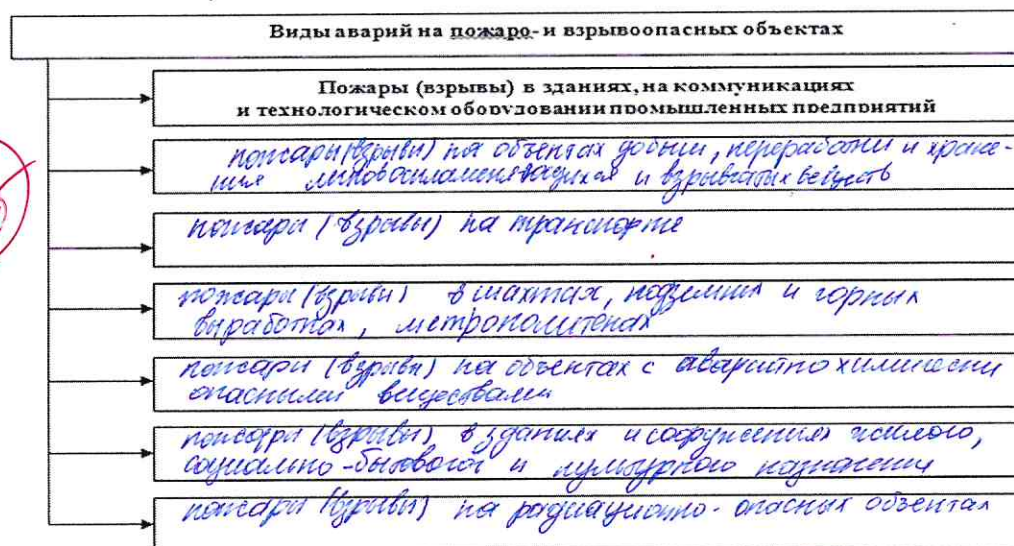 Виды аварий на пожаро- и взрывоопасных объектах
Пожары (взрывы) в зданиях, на коммуникациях
и технологическом оборудовании промышленных предприятий
пожары (взрывы) на объектах добычи, переработки и хране-
ния легковоспламеняющихся и взрывчатых веществ
пожары (взрывы) на транспорте
пожары (взрывы) в шахтах, подземных и горных
выработках, метрополитенах
пожары (взрывы) на объектах с аварийно химически
опасными веществами
пожары (взрывы) в зданиях и сооружениях жилого,
социально-бытового и культурного назначения
пожары (взрывы) на радиационно-опасных объектах